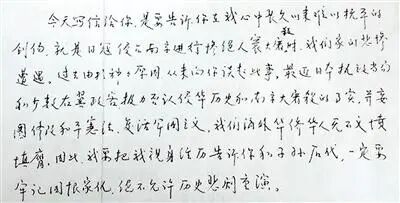 今天写信给你,是要告诉你在我心中长久以来难以抚平的
创伤,就是日寇侵占南京进行惨绝人寰大屠杀时,我们家的悲惨
遭遇。过去由于种种原因从来向你谈起此事。最近日本执政当局
和少数右翼政客极力否认侵华历史和南京大屠杀的事实,并妄
图修改和平宪法,复活军国主义,我们海外华侨华人无不义愤
填膺。因此,我要把我亲身经历告诉你和子孙后代,一定要
牢记国恨家仇,绝不允许历史悲剧重演。